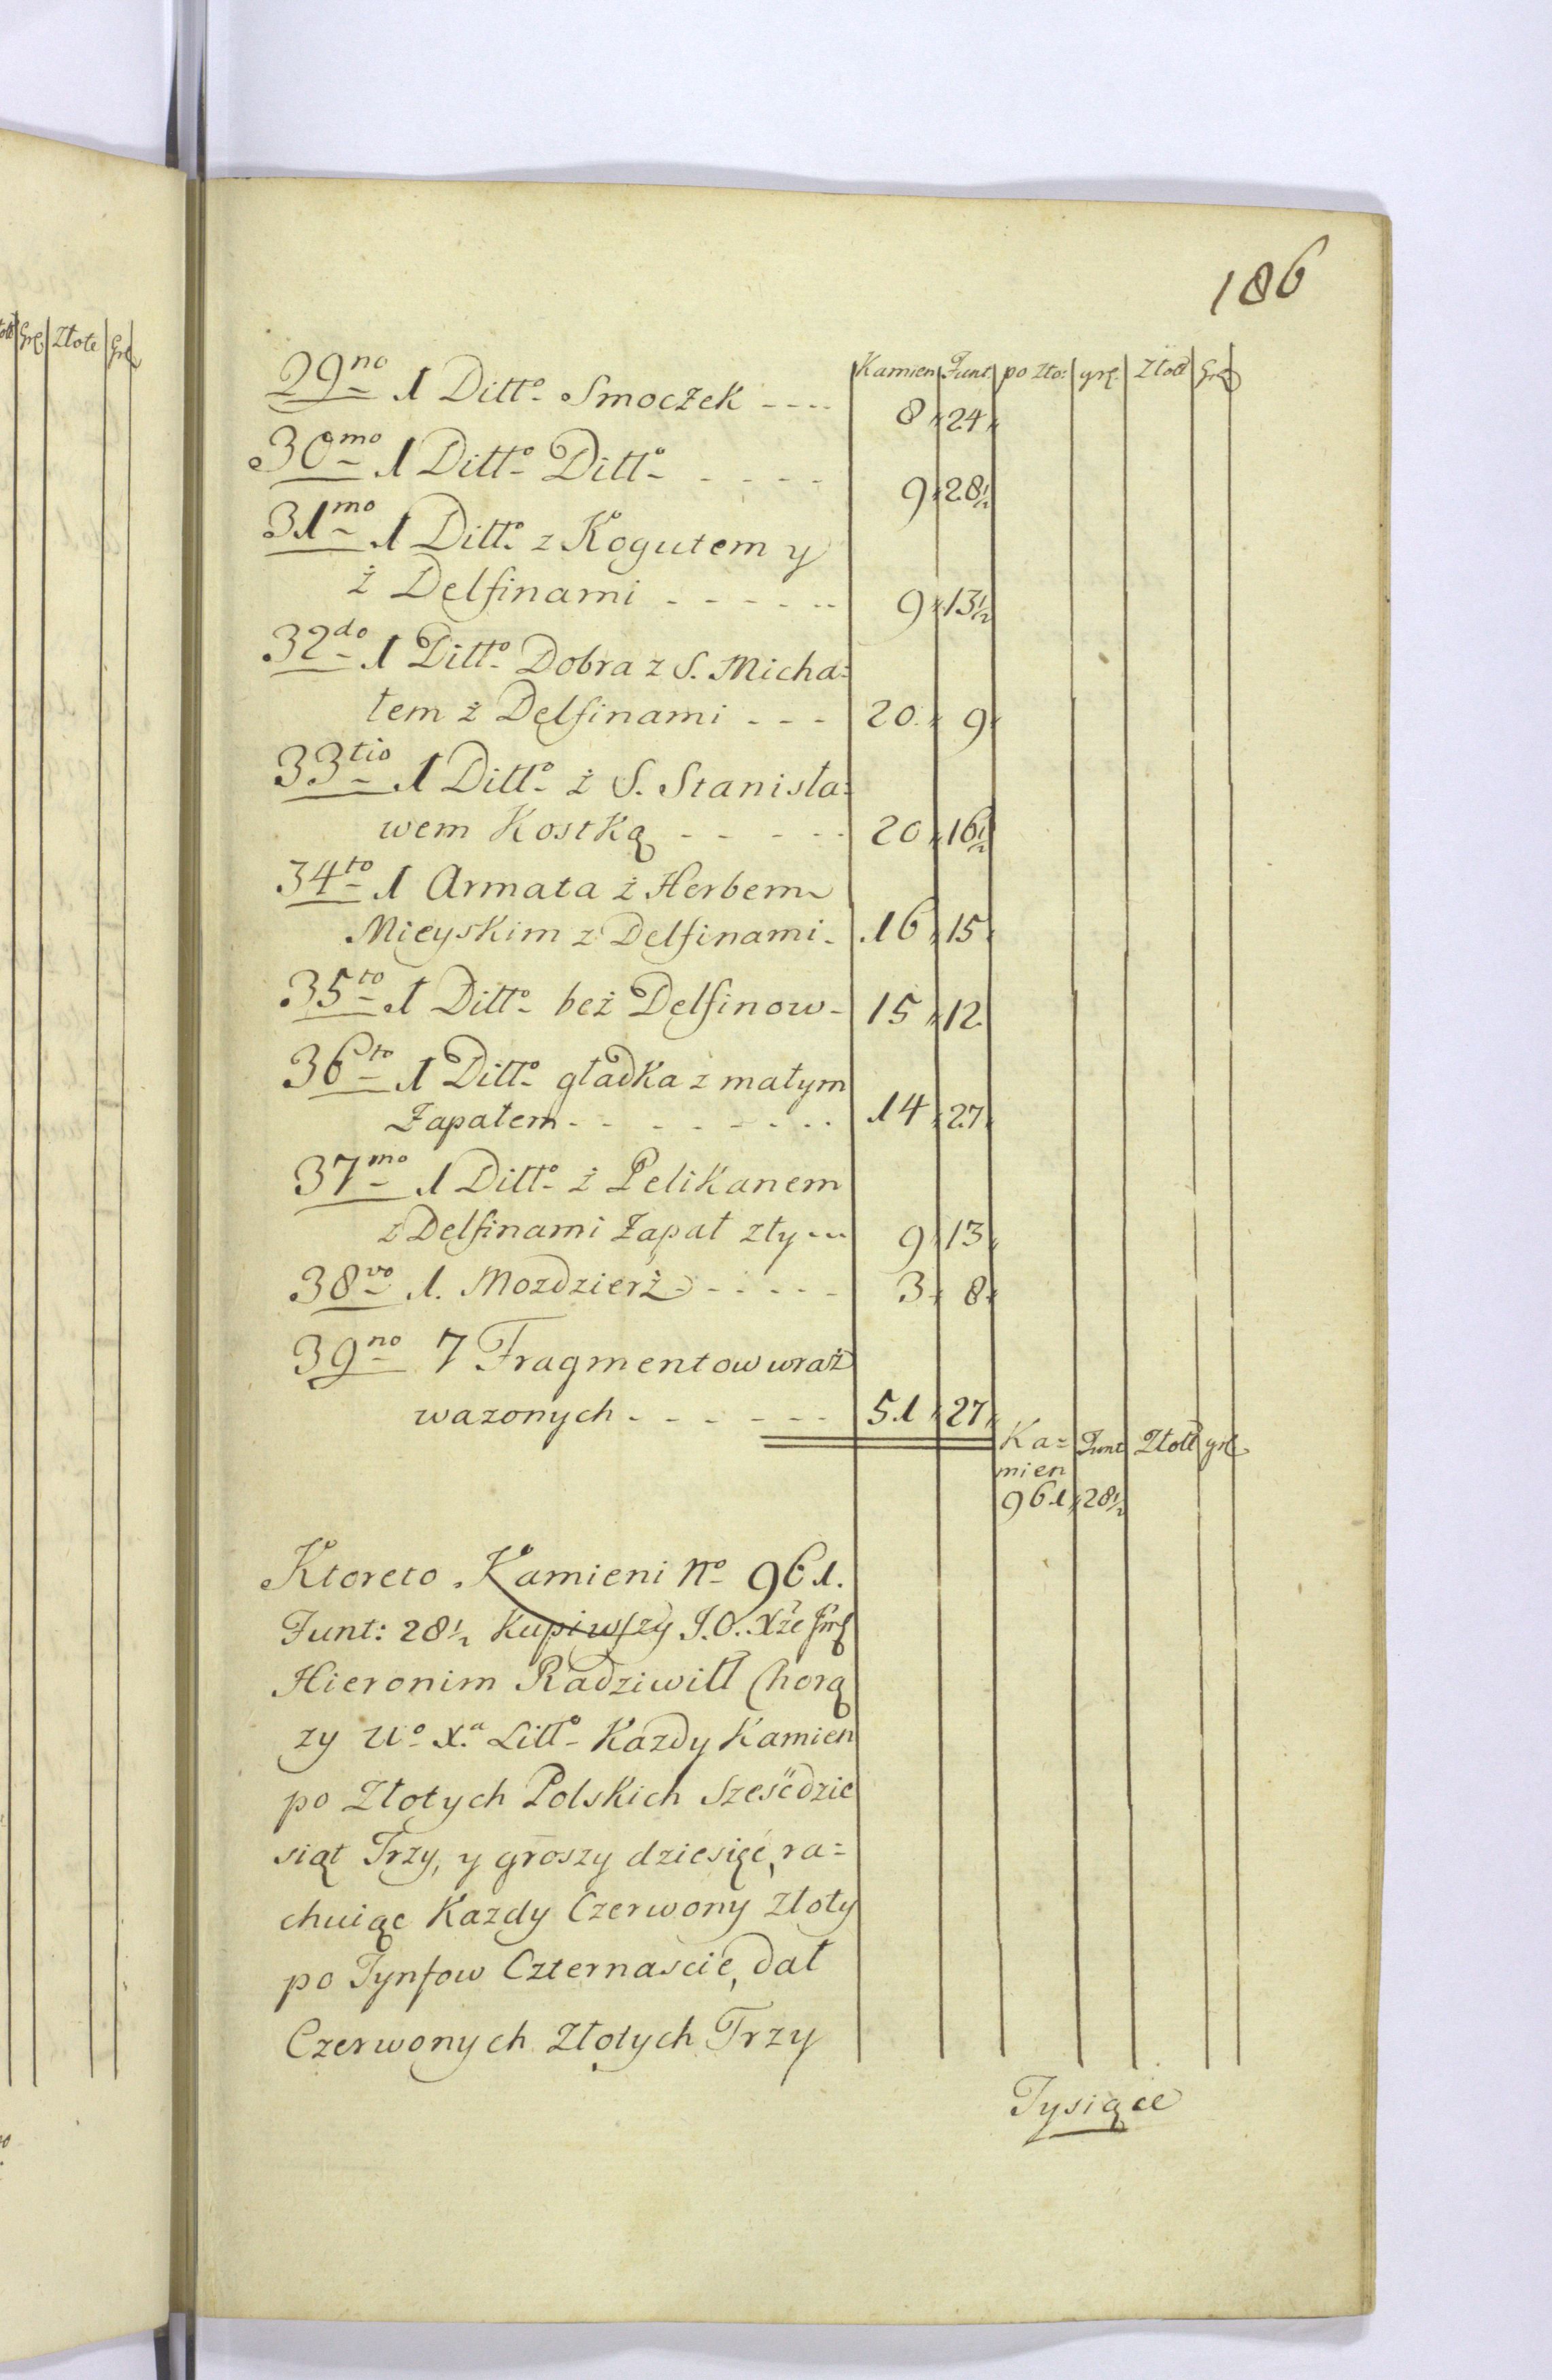 186
Kamien Funt po Zło: grę. Złott Grę
29no 1 Ditto Smoczek - - - - 8 24
30mo 1 Ditto Ditto - - - - 9 28½
31mo 1 Ditto z Kogutem y
ż Delfinami - - - - - - 9 13½
32do 1 Ditto Dobra z S. Micha=
łem ż Delfinami - - - 20 9
33tio 1 Ditto ż S. Stanisła=
wem Kostką - - - - - 20 16½
34to 1 Armata ż Herbem
Mieyskim z Delfinami - 16 15
35to 1 Ditto beż Delfinow - 15 12
36to 1 Ditto gładka ż małym
Zapałem - - - - - - - 14 27
37mo 1 Ditto ż Pelikanem
z Delfinami Zapał zły - - - 9 13
38vo 1. Mozdzierż - - - - - 3 8
39no 7 Fragmentow wraż
wazonych - - - - - - 51 27
Ka= Funt Złott grę
mien
961 28½
Ktoreto Kamieni No 961.
Funt: 28½ Kupiwszy J. O. Xże
Hieronim Radziwiłł Chorą
zy Xa Litto Kazdy Kamien
po Złotych Polskich Szesćdzie
siąt Trzy, y groszy dziesięć, ra=
chuiąc Kazdy Czerwony Złoty
po Tynfow Czternascie, dał
Czerwonych Złotych Trzy
Tysiące
Grę Złote Grę